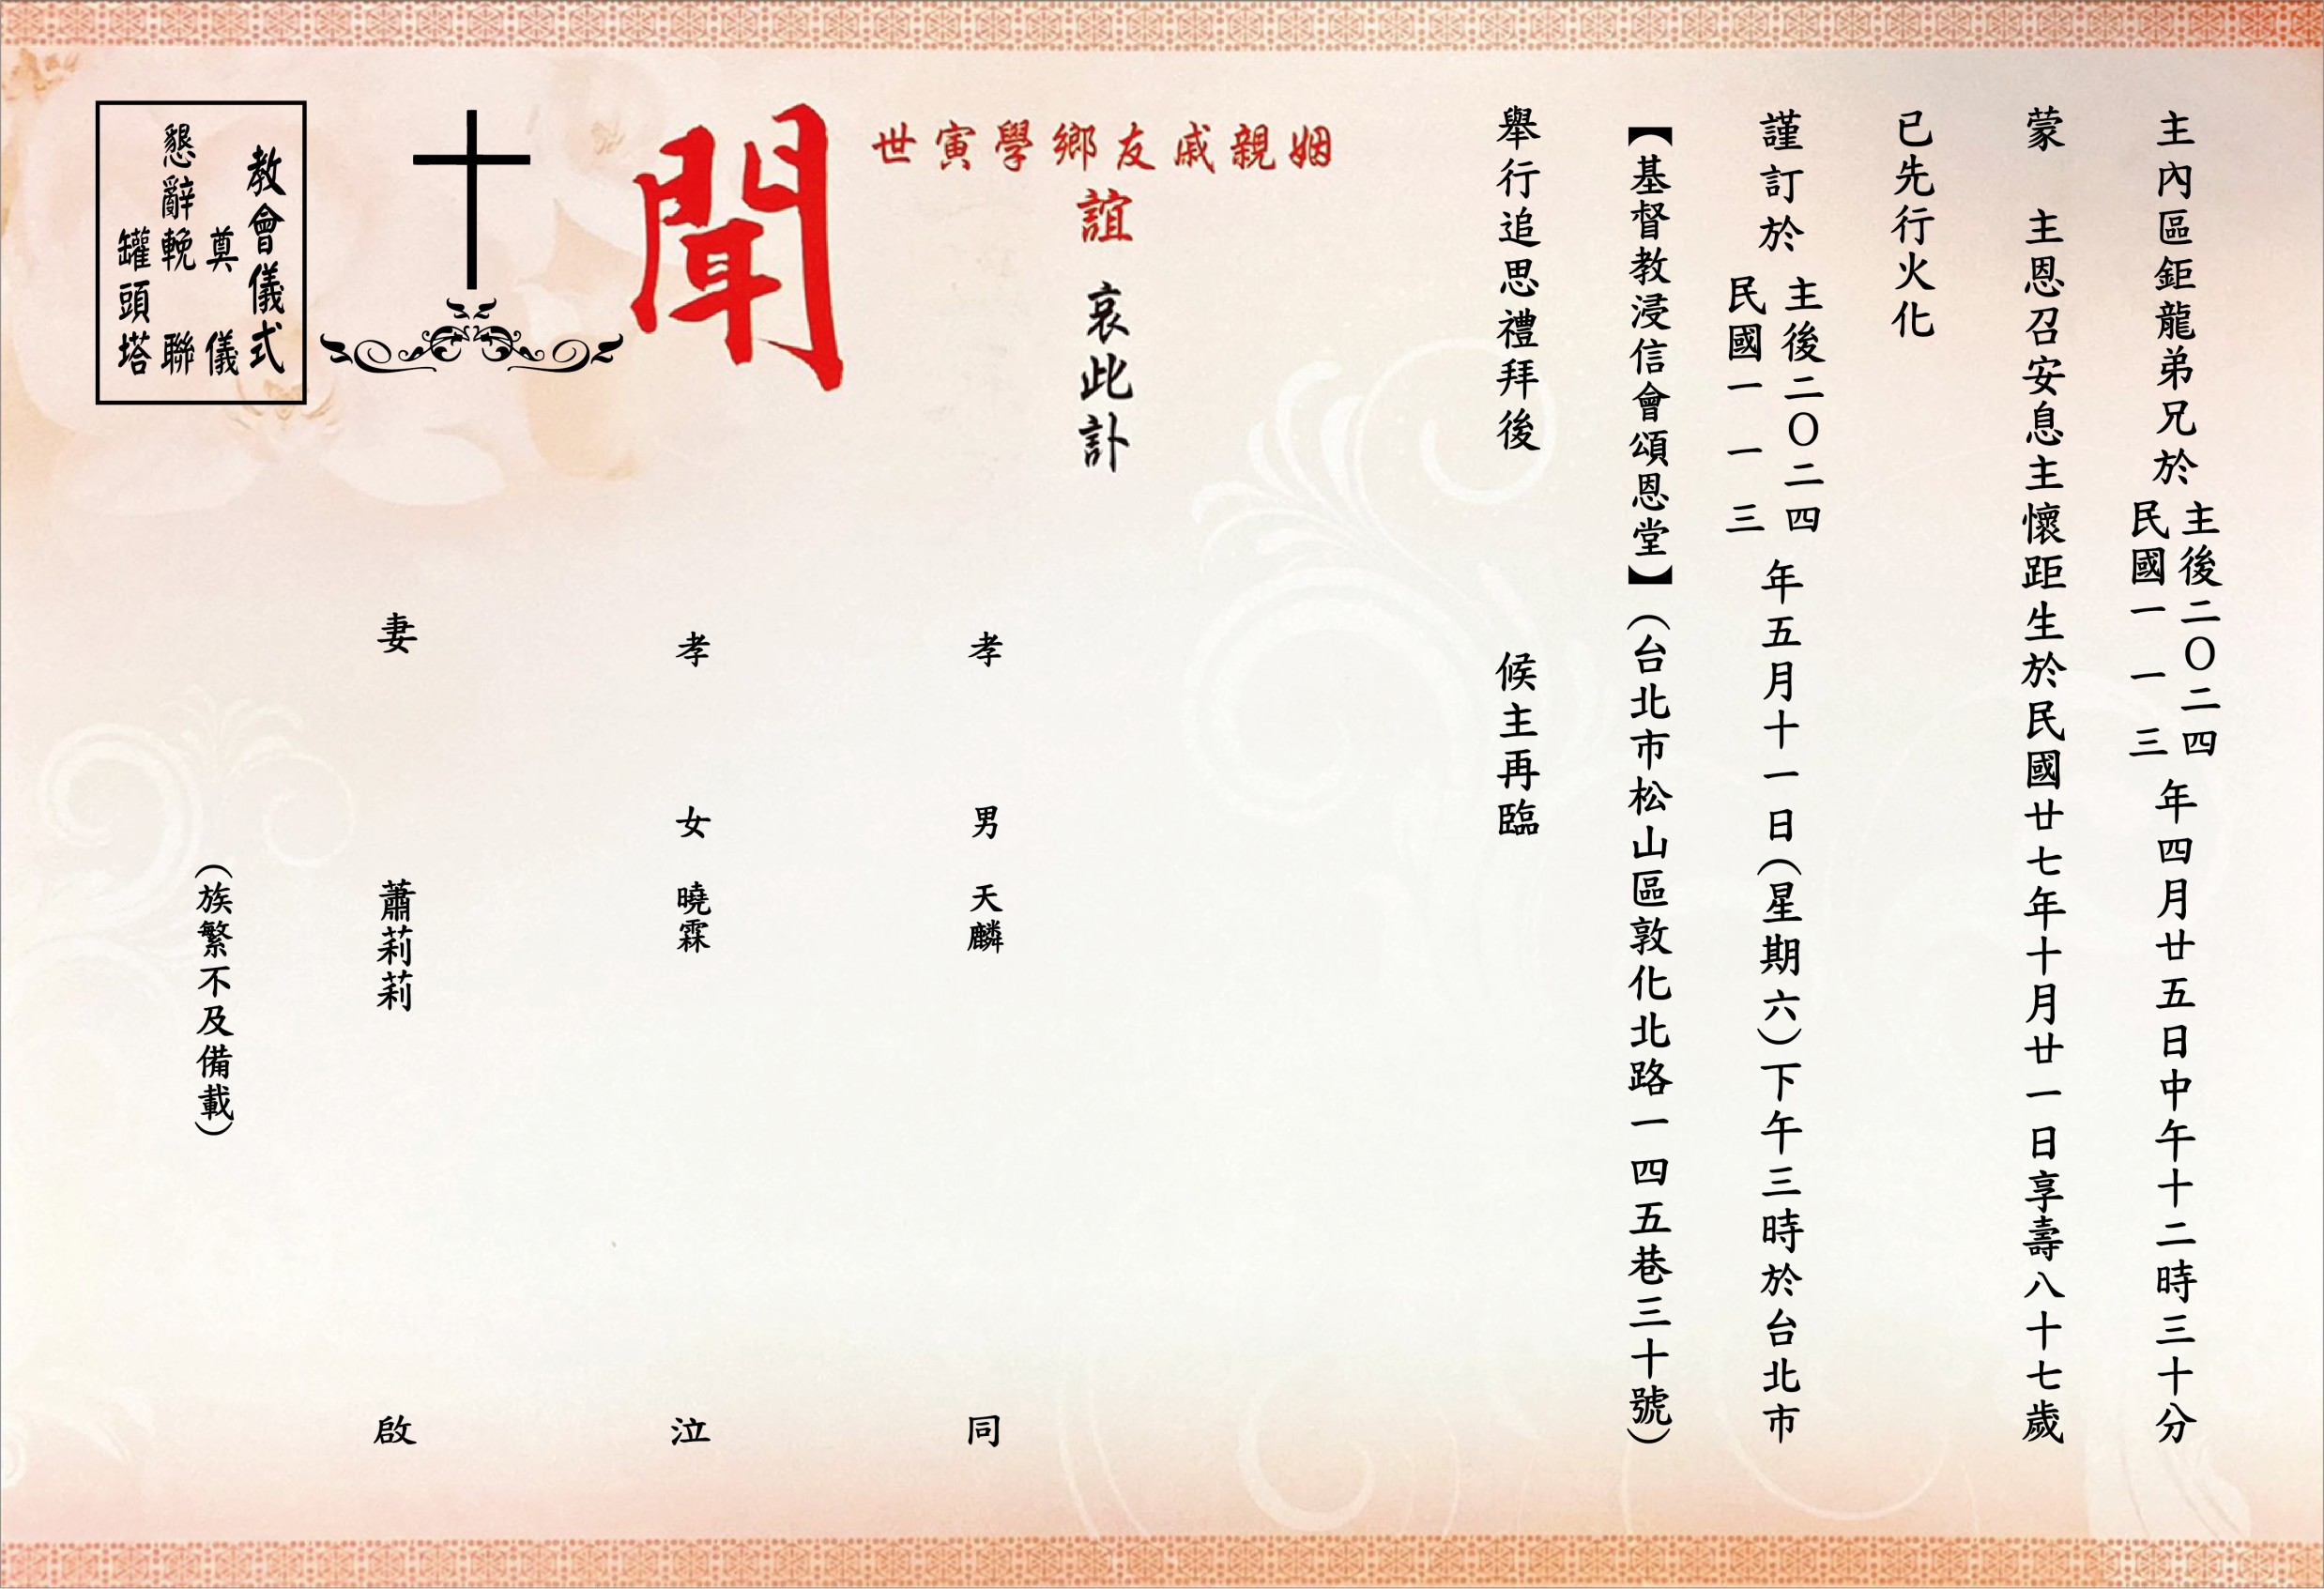 主內區鉅龍弟兄於主後二〇二四民國一一三年四月廿五日中午十二時三十分
蒙　主恩召安息主懷距生於民國廿七年十月廿一日享壽八十七歲
已先行火化
謹訂於主後二〇二四民國一一三年五月十一日(星期六)下午三時於台北市
【基督教浸信會頌恩堂】(台北市松山區敦化北路一四五巷三十號)
舉行追思禮拜後　候主再臨
姻親戚友鄉學寅世
誼
哀此訃
聞
孝　男　天麟　同
孝　女　曉霖　泣
妻　蕭莉莉　啟
(族繁不及備載)
教會儀式
懇辭
奠儀
輓聯
罐頭塔